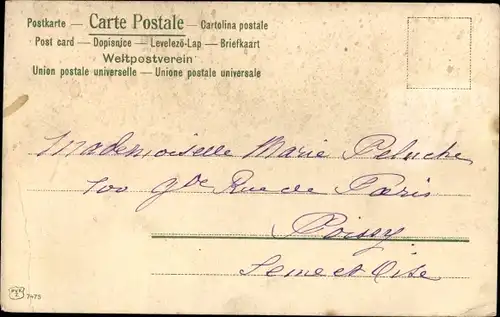 Postkarte — Carte Postale — Cartolina postale
Post card — Dopisnice — Levelező-Lap — Briefkaart
Weltpostverein
Union postale universelle — Unione postale universale
Mademoiselle Marie Peluche
100 Gde Rue de Paris
Poissy
Seine et Oise
7475